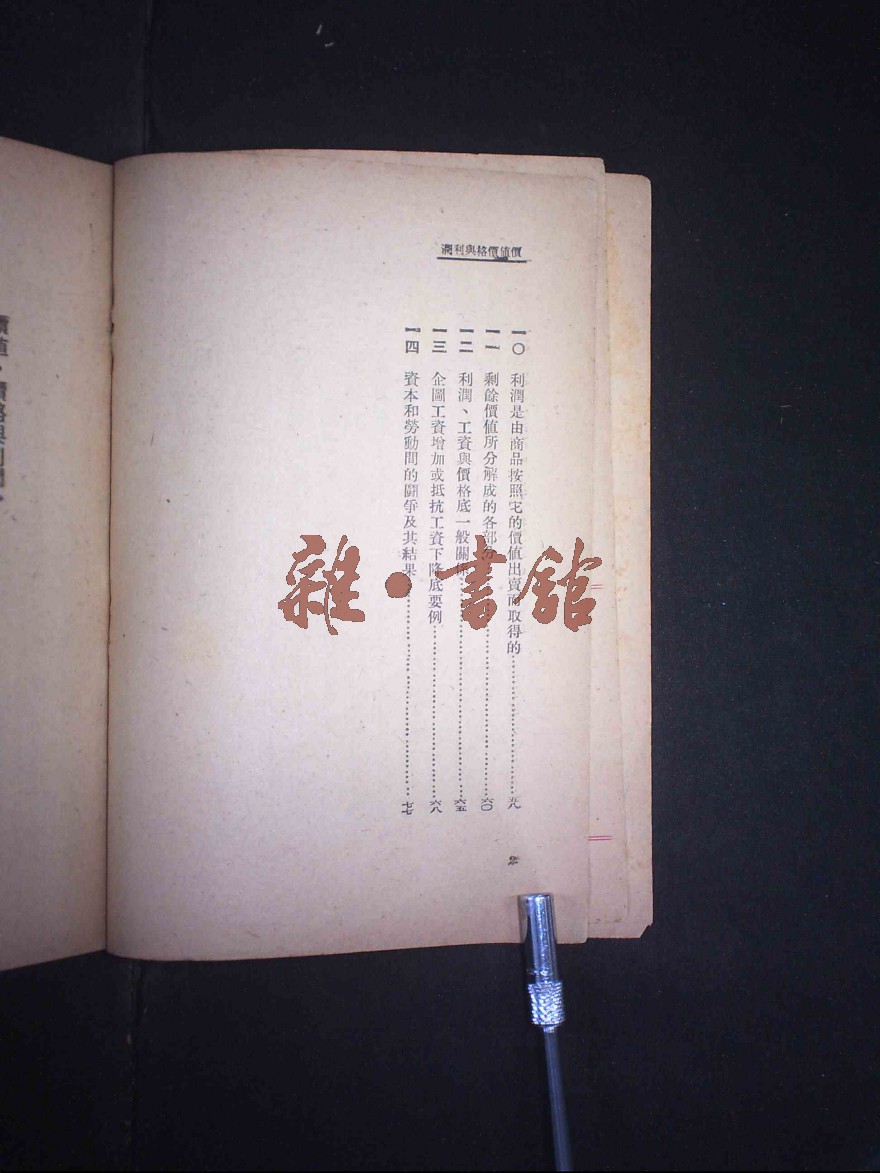 價值價格與利潤
一〇 利潤是由商品按照它的價値出賣而取得的……五八
一一 剩餘價値所分解成的各部分……六〇
一二 利潤、工資與價格底一般關係……六五
一三 企圖工資增加或抵抗工資下降底要例……六八
一四 資本和勞動間的鬭爭及其結果……七七
2
雜·書館